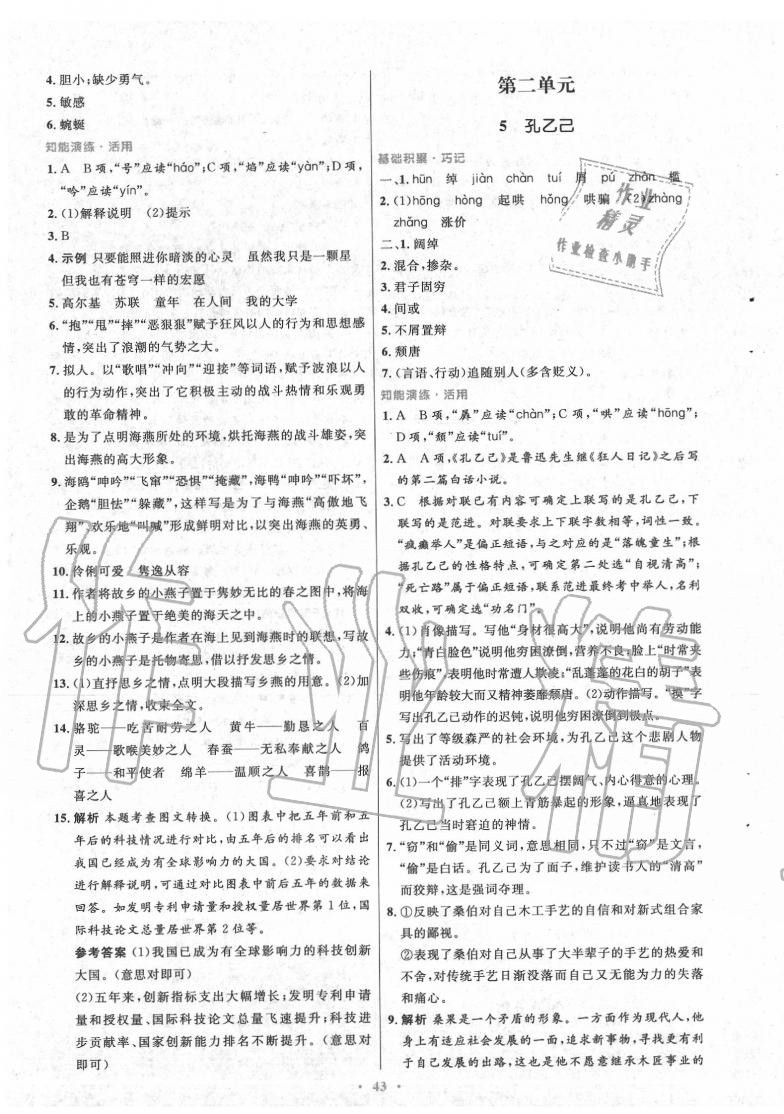 4. 胆小;缺少勇气。
5. 敏感
6. 蜿蜒
知能演练·活用
1. A　B项,“号”应读“háo”;C项,“焰”应读“yàn”;D项,
“吟”应读“yín”。
2. (1)解释说明　(2)提示
3. B
4. 示例　只要能照进你暗淡的心灵　虽然我只是一颗星
但我也有苍穹一样的宏愿
5. 高尔基　苏联　童年　在人间　我的大学
6. “抱”“甩”“摔”“恶狠狠”赋予狂风以人的行为和思想感
情,突出了浪潮的气势之大。
7. 拟人。以“歌唱”“冲向”“迎接”等词语,赋予波浪以人
的行为动作,突出了它积极主动的战斗热情和乐观勇
敢的革命精神。
8. 是为了点明海燕所处的环境,烘托海燕的战斗雄姿,突
出海燕的高大形象。
9. 海鸥“呻吟”“飞窜”“恐惧”“掩藏”,海鸭“呻吟”“吓坏”,
企鹅“胆怯”“躲藏”,这样写是为了与海燕“高傲地飞
翔”、欢乐地“叫喊”形成鲜明对比,以突出海燕的英勇、
乐观。
10. 伶俐可爱　隽逸从容
11. 作者将故乡的小燕子置于隽妙无比的春之图中,将海
上的小燕子置于绝美的海天之中。
12. 故乡的小燕子是作者在海上见到海燕时的联想,写故
乡的小燕子是托物寄思,借以抒发思乡之情。
13. (1)直抒思乡之情,点明大段描写乡燕的用意。(2)加
深思乡之情,收束全文。
14. 骆驼——吃苦耐劳之人　黄牛——勤恳之人　百
灵——歌喉美妙之人　春蚕——无私奉献之人　鸽
子——和平使者　绵羊——温顺之人　喜鹊——报
喜之人
15. 解析　本题考查图文转换。(1)图表中把五年前和五
年后的科技情况进行对比,由五年后的排名可以看出
我国已经成为有全球影响力的大国。(2)要求对结论
进行解释说明,可通过对比图表中前后五年的数据来
回答。如发明专利申请量和授权量居世界第1位,国
际科技论文总量居世界第2位等。
参考答案　(1)我国已成为有全球影响力的科技创新
大国。(意思对即可)
(2)五年来,创新指标支出大幅增长;发明专利申请
量和授权量、国际科技论文总量飞速提升;科技进
步贡献率、国家创新能力排名不断提升。(意思对
即可)
第二单元
5　孔乙己
基础积累·巧记
一、1. hūn　绰　jiàn　chàn　tuí　屑　pú　zhàn　槛
2. (1)hōng　hòng　起哄　hǒng　哄骗　(2)zhàng
zhǎng　涨价
二、1. 阔绰
2. 混合,掺杂。
3. 君子固穷
4. 间或
5. 不屑置辩
6. 颓唐
7. (言语、行动)追随别人(多含贬义)。
知能演练·活用
1. A　B项,“羼”应读“chàn”;C项,“哄”应读“hōng”;
D项,“颓”应读“tuí”。
2. A　A项,《孔乙己》是鲁迅先生继《狂人日记》之后写
的第二篇白话小说。
3. C　根据对联已有内容可确定上联写的是孔乙己,下
联写的是范进。对联要求上下联字数相等,词性一致。
“疯癫举人”是偏正短语,与之对应的是“落魄童生”;根
据孔乙己的性格特点,可确定第二处选“自视清高”;
“死亡路”属于偏正短语,联系范进最终考中举人,名利
双收,可确定选“功名门”。
4. (1)肖像描写。写他“身材很高大”,说明他尚有劳动能
力;“青白脸色”说明他穷困潦倒,营养不良;脸上“时常夹
些伤痕”,表明他时常遭人欺凌;“乱蓬蓬的花白的胡子”表
明他年龄较大而又精神萎靡颓唐。(2)动作描写。“摸”字
写出孔乙己动作的迟钝,说明他穷困潦倒到极点。
5. 写出了等级森严的社会环境,为孔乙己这个悲剧人物
提供了活动环境。
6. (1)一个“排”字表现了孔乙己摆阔气、内心得意的心理。
(2)写出了孔乙己额上青筋暴起的形象,逼真地表现了
孔乙己当时窘迫的神情。
7. “窃”和“偷”是同义词,意思相同,只不过“窃”是文言,
“偷”是白话。孔乙己为了面子,维护读书人的“清高”
而狡辩,这是强词夺理。
8. ①反映了桑伯对自己木工手艺的自信和对新式组合家
具的鄙视。
②表现了桑伯对自己从事了大半辈子的手艺的热爱和
不舍,对传统手艺日渐没落而自己又无能为力的失落
和痛心。
9. 解析　桑果是一个矛盾的形象。一方面作为现代人,他
有适应社会发展的一面,追求新事物,寻求更有利
于自己发展的出路,这也是他不愿意继承木匠事业的
· 43 ·
作业
精灵
作业检查小助手
作业精